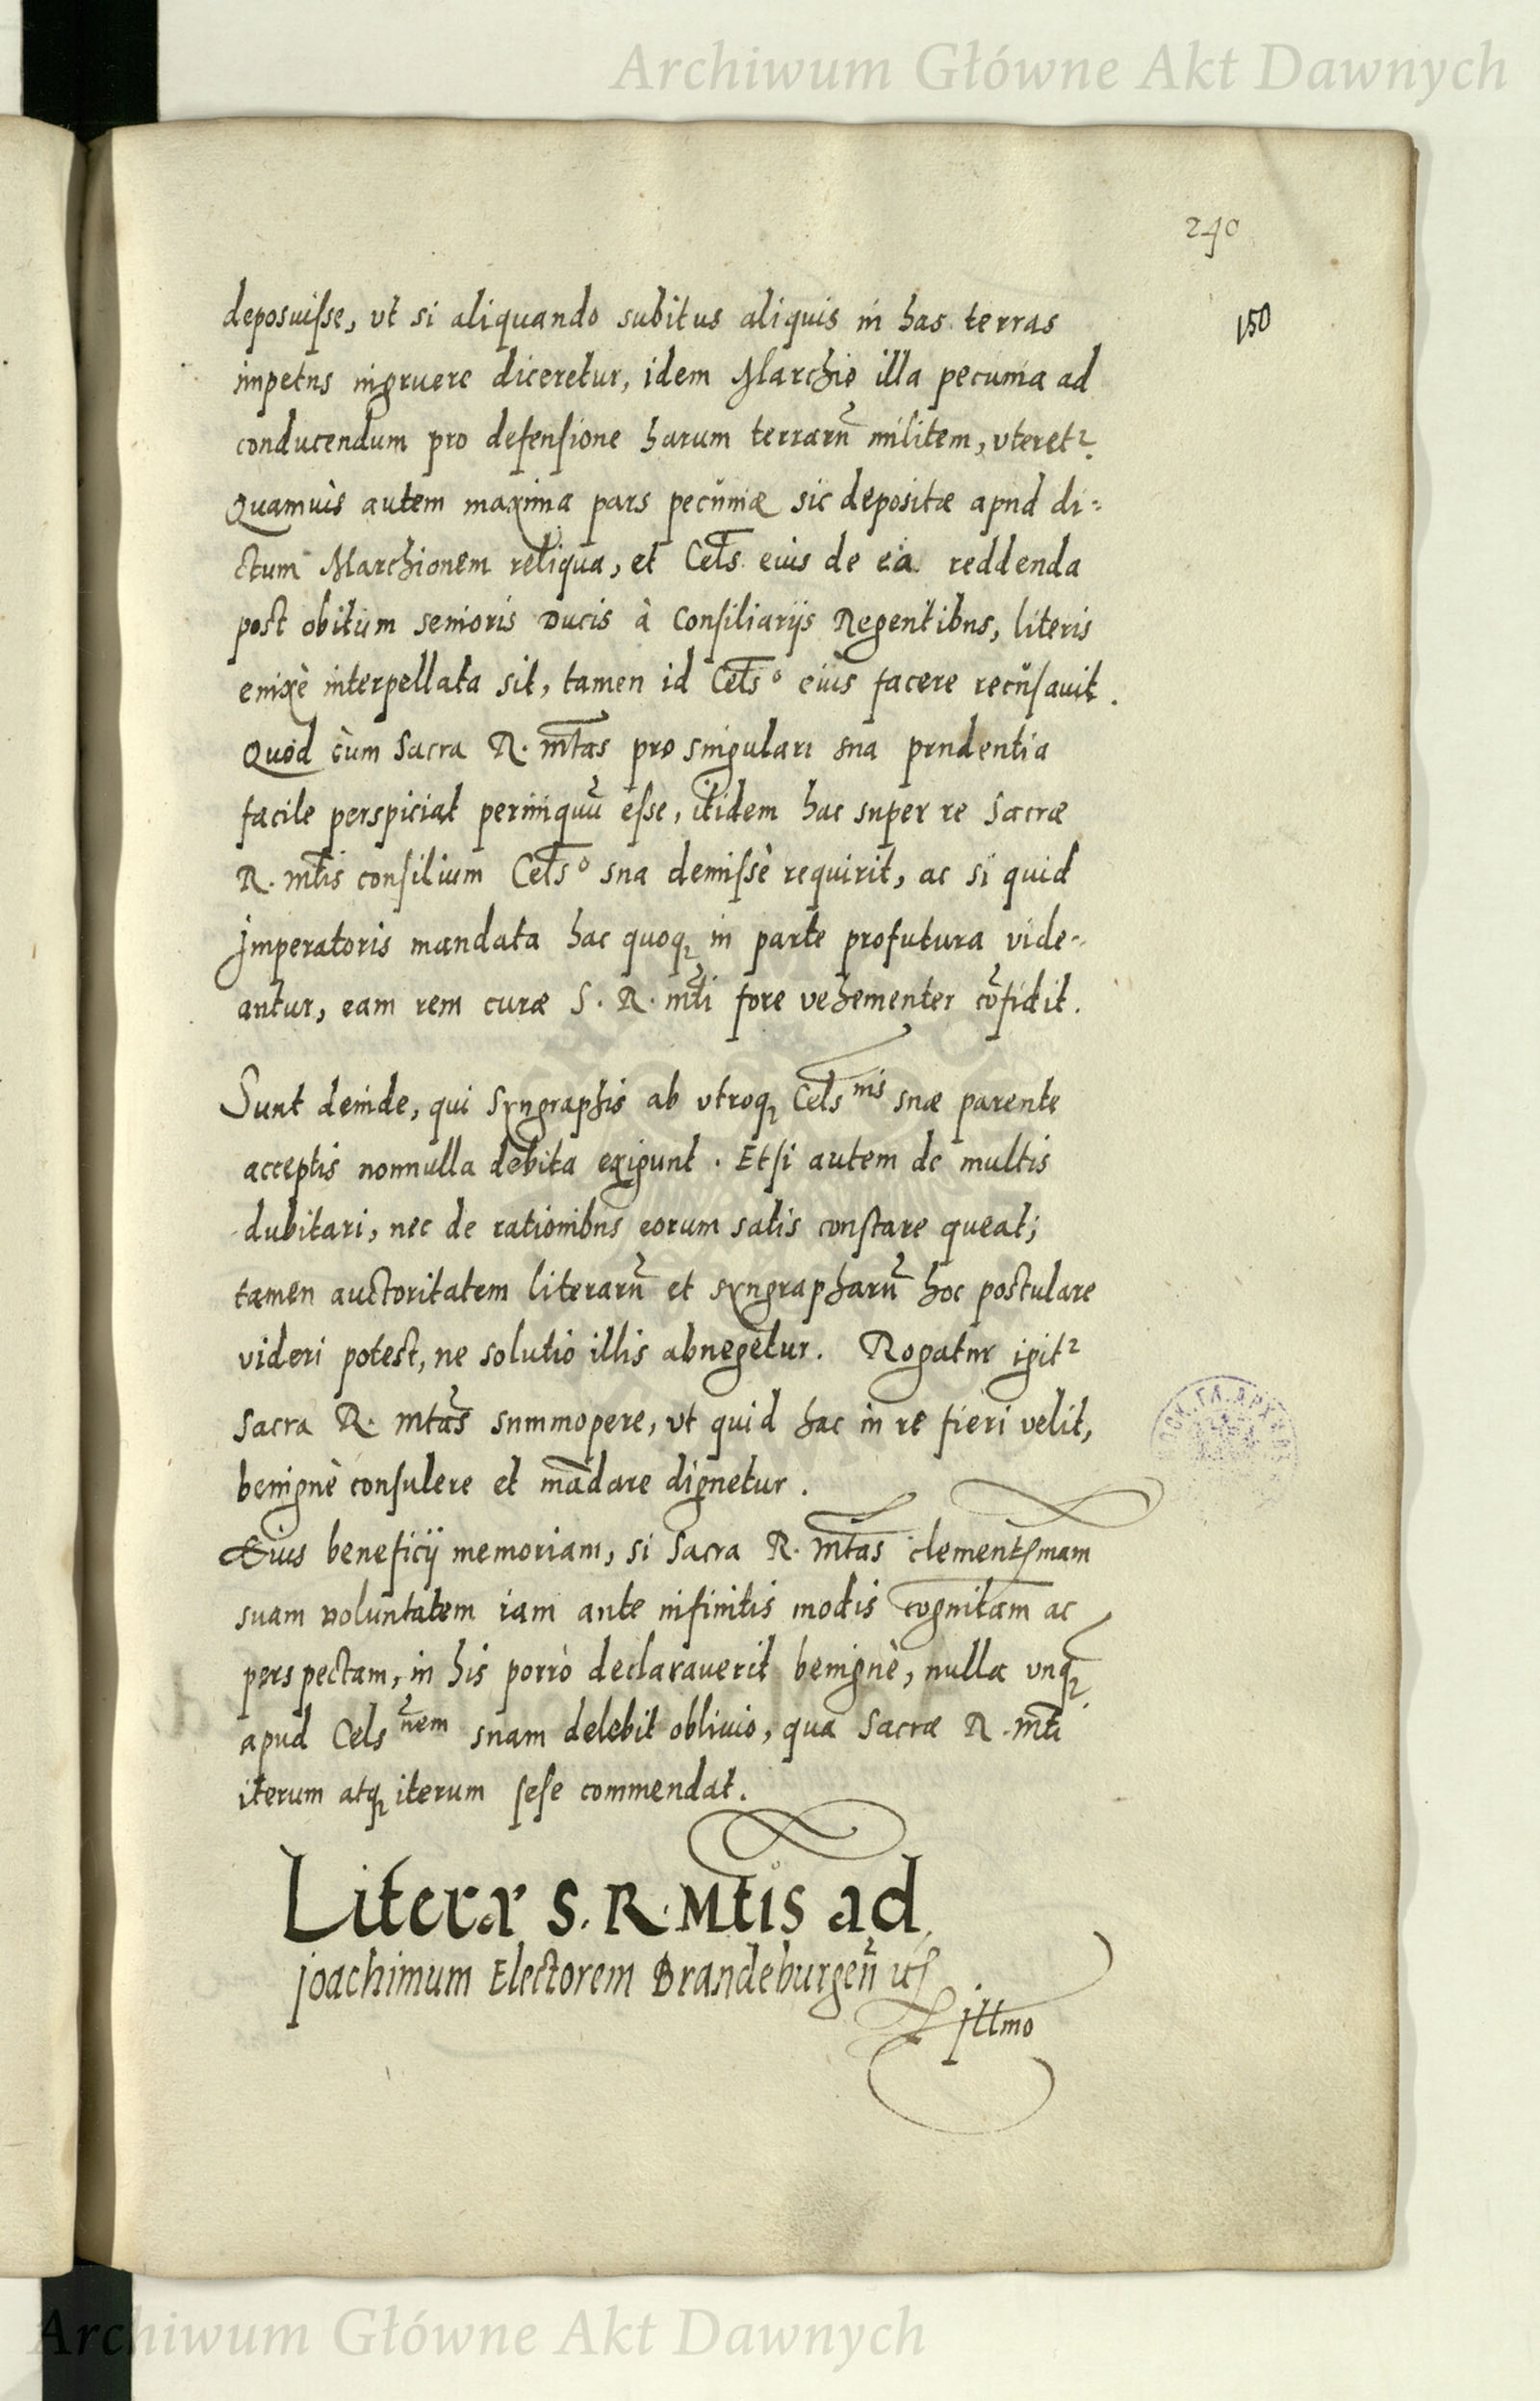 Archiwum Główne Akt Dawnych
240
150
deposuisse, vt si aliquando subitus aliquis in has terras
impetus ingruere diceretur, idem Marchio illa pecunia ad
conducendum pro defensione harum terrarũ militem, vteret².
Quamuis autem maxima pars pecuniæ sic depositæ apud di=
ctum Marchionem reliqua, et Cels. eius de ea reddenda
post obitum senioris Ducis à Consiliarijs Regentibus, literis
enixè interpellata sit, tamen id Celsº eius facere recusauit.
Quod cùm Sacra R. Mtas pro singulari sua prudentia
facile perspiciat periniquũ esse, itidem hac super re Sacræ
R. Mtis consilium Celsº sua demissè requirit, ac si quid
Imperatoris mandata hac quoq; in parte profutura vide-
antur, eam rem curæ S. R. Mti fore vehementer cõfidit.
Sunt deinde, qui syngraphis ab vtroq; Celsnis suæ parente
acceptis nonnulla debita exigunt. Etsi autem de multis
dubitari, nec de rationibus eorum satis constare queat;
tamen auctoritatem literarũ et syngrapharũ hoc postulare
videri potest, ne solutio illis abnegetur. Rogatur igit²
Sacra R. Mtas summopere, vt quid hac in re fieri velit,
benignè consulere et mãdare dignetur.
Eius beneficij memoriam, si Sacra R. Mtas clementssmam
suam voluntatem iam ante infinitis modis cognitam ac
perspectam, in his porrò declarauerit benignè, nulla vnq;
apud Celsnem suam delebit obliuio, qua Sacræ R. Mti
iterum atq; iterum sese commendat.
Literæ S. R. Mtis ad
Joachimum Electorem Brandeburgeñ
Illmo
Archiwum Główne Akt Dawnych